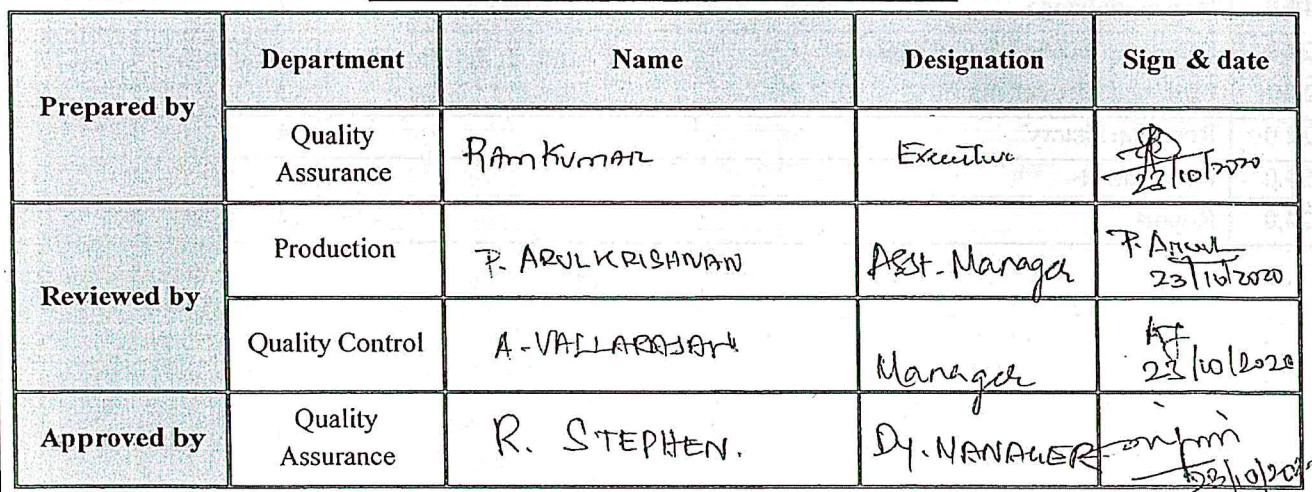 Department Name Designation Sign & date
Prepared by
Quality Assurance RAMKUMAR Executive 23/10/2020
Reviewed by
Production P. ARULKRISHNAN Asst. Manager P. Arul 23/10/2020
Quality Control A. VALLARASAN Manager 23/10/2020
Approved by
Quality Assurance R. STEPHEN. Dy. MANAGER 23/10/202